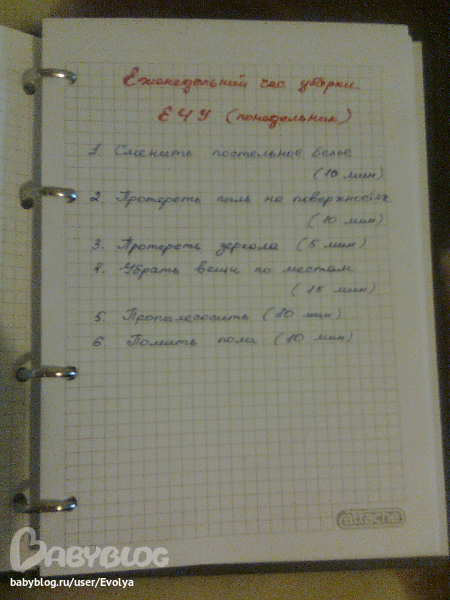 Еженедельный час уборки.
ЕЧУ (понедельник)
1. Сменить постельное белье
(10 мин)
2. Протереть пыль на поверхностях
(10 мин)
3. Протереть зеркала (5 мин)
4. Убрать вещи по местам
(15 мин)
5. Пропылесосить (10 мин)
6. Помыть полы (10 мин)
attache
BABYBLOG
babyblog.ru/user/Evolya